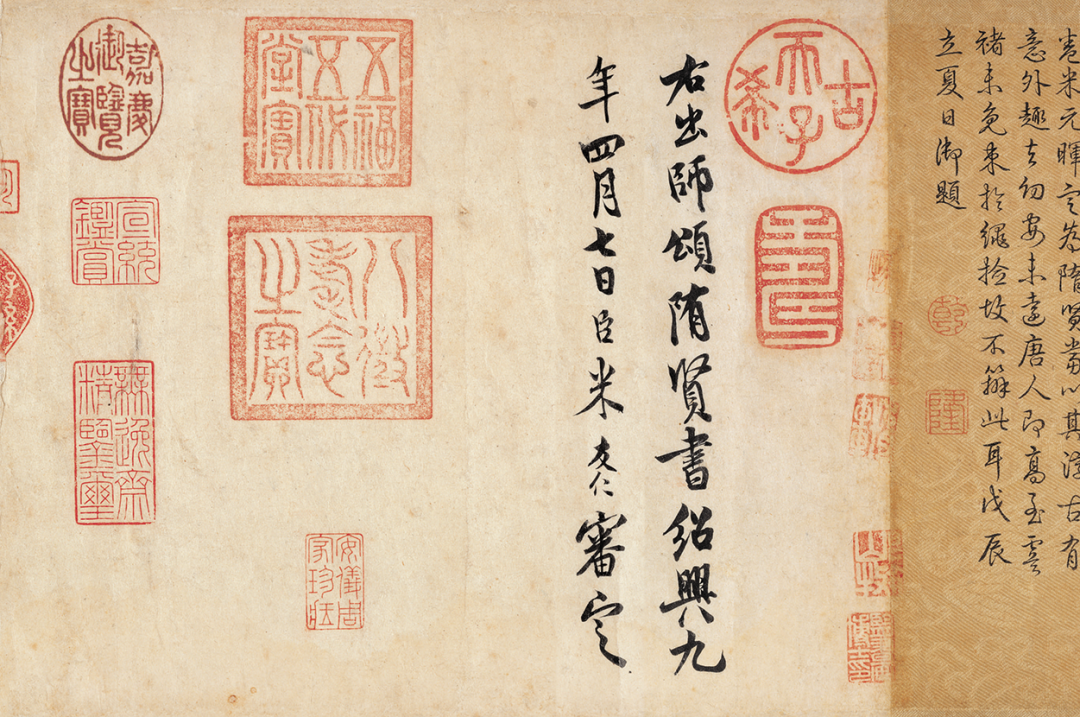 卷米元暉定為隋賢當以其淳古有
意外趣去幼安未遠唐人即高至虞
褚未免束於繩撿故不辦此耳戊辰
立夏日御題
乾
隆
古希天子
壽
右出師頌隋賢書紹興九
年四月七日臣米友仁審定
五福五代堂寶
八徵耄念之寶
安儀周家珍藏
嘉慶御覽之寶
宣統鑑賞
無逸齋精鑒璽